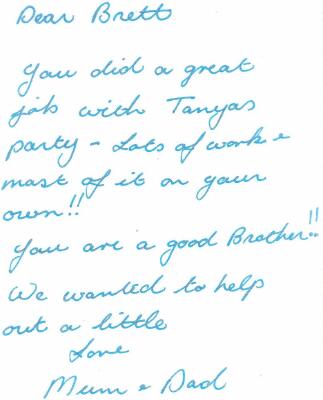 Dear Brett
You did a great
job with Tanyas
party - Lots of work &
most of it on your
own!!
You are a good Brother!!
We wanted to help
out a little
Love
Mum & Dad